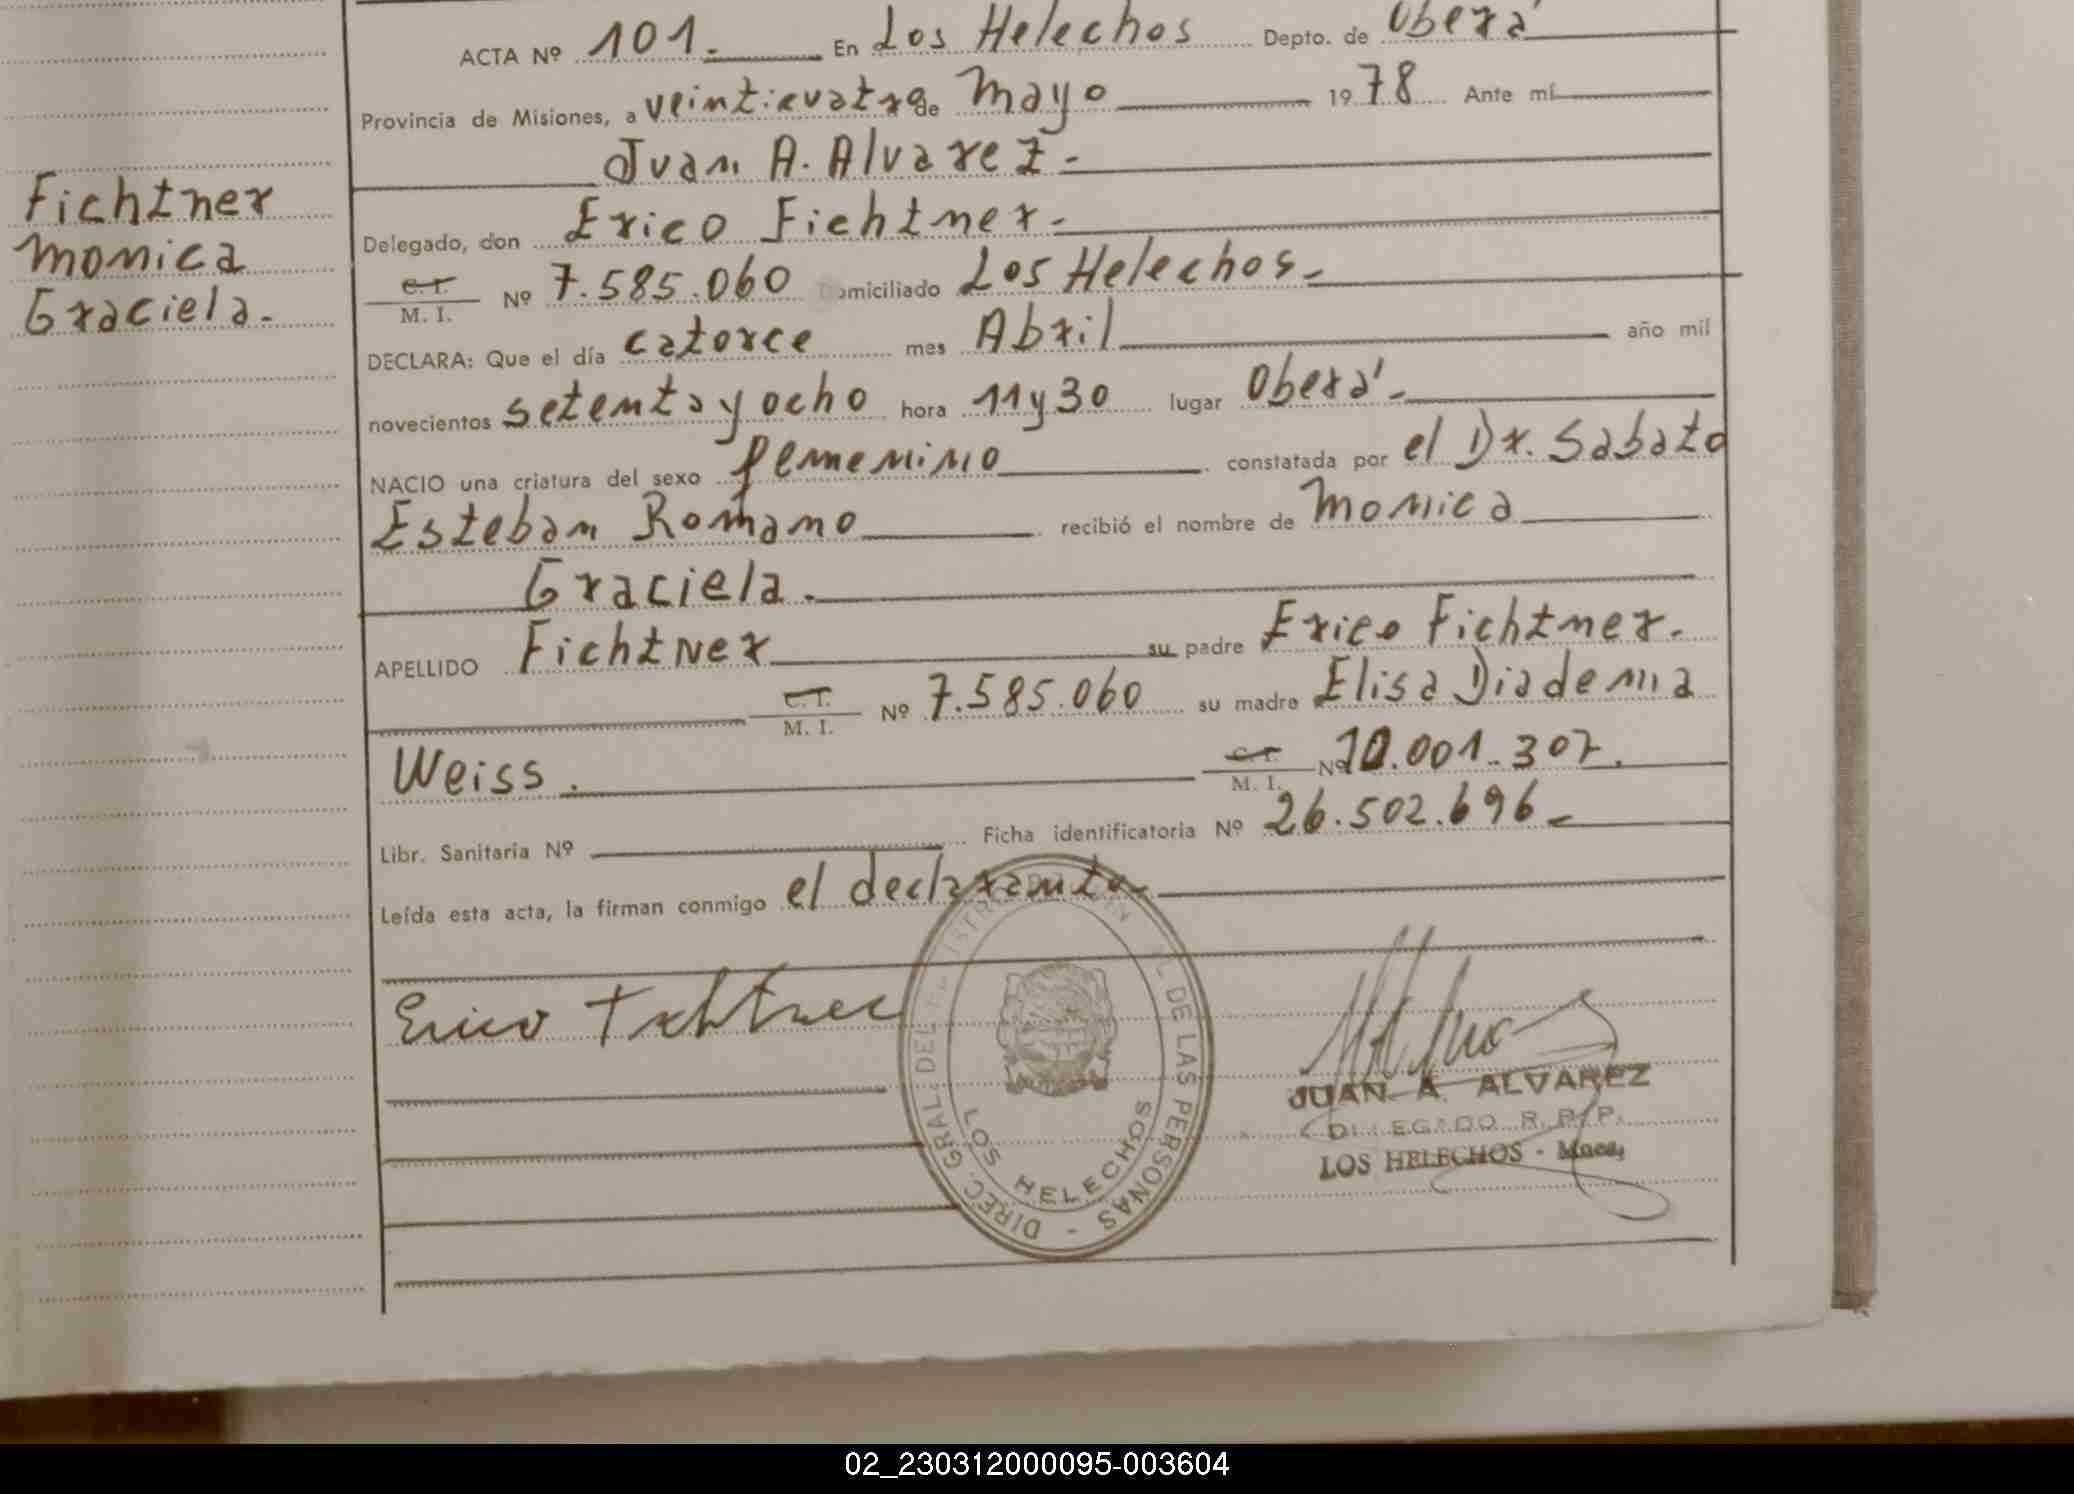 ACTA Nº 101. En Los Helechos Depto. de Oberá
Provincia de Misiones, a veinticuatro de Mayo 1978 Ante mí
Juan A. Alvarez -
Fichtner
Monica
Graciela.
Delegado, don Erico Fichtner.
C. I.
M. I. Nº 7.585.060 Domiciliado Los Helechos.
DECLARA: Que el día catorce mes Abril año mil
novecientos setenta y ocho hora 11 y 30 lugar Oberá -
NACIO una criatura del sexo femenino constatada por el Dr. Sabato
Esteban Romano recibió el nombre de Monica
Graciela.
APELLIDO Fichtner su padre Erico Fichtner.
C. I.
M. I. Nº 7.585.060 su madre Elisa Diadema
Weiss. C. I.
M. I. Nº 10.001.307.
Libr. Sanitaria Nº Ficha identificatoria Nº 26.502.696 -
Leída esta acta, la firman conmigo el declarante.
Erico Fichtner
DIREC. GRAL. DEL DE LAS PERSONAS -
LOS HELECHOS
JUAN A. ALVAREZ
DELEGADO R. P. P.
LOS HELECHOS - Mnes,
02_230312000095-003604